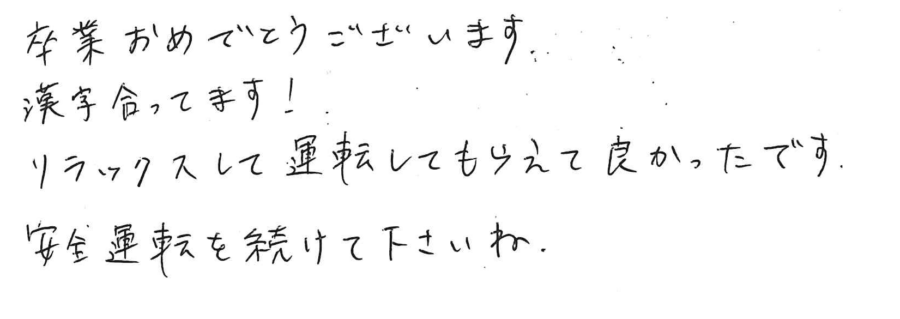 卒業おめでとうございます.
漢字合ってます!
リラックスして運転してもらえて良かったです.
安全運転を続けて下さいね.